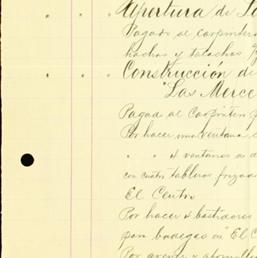 Apertura de
Pagado al carpintero
hachas y talachas
Construcción de
"Las Merce
Pagad al Carpinter
Por hacer una ventana
" " 4 ventanas
con cuatro tableros
El Centro
Por hacer 4 bastidores
para bodegas en "El C
Por